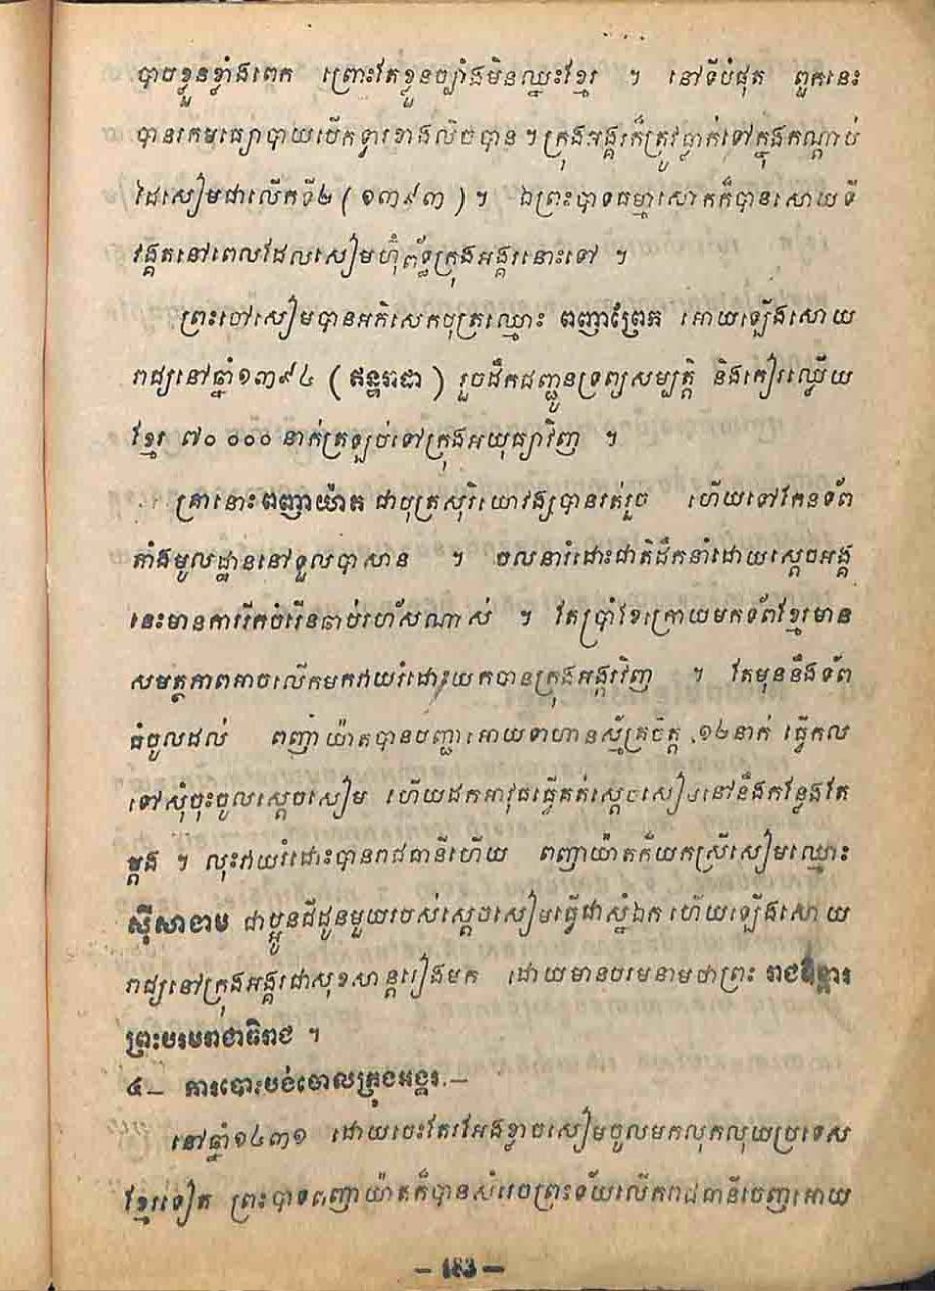 បាចខ្លួនខ្លាំងពេក ព្រោះតែខ្លួនច្បាំងមិនឈ្នះខ្មែរ ។ នៅទីបំផុត ពួកនេះ
បានរកមធ្យោបាយបើកទ្វារខាងលិចបាន ។ ក្រុងអង្គរក៏ត្រូវធ្លាក់ទៅក្នុងកណ្តាប់
ដៃសៀមជាលើកទី២ ( ១៣៩៣ ) ។ ឯព្រះបាទធម្មាសោកក៏បានសោយទី
វង្គតនៅពេលដែលសៀមហ៊ុំព័ទ្ធក្រុងអង្គរនោះទៅ ។
ព្រះចៅសៀមបានអភិសេកបុត្រឈ្មោះ ពញាព្រែក អោយឡើងសោយ
រាជ្យនៅឆ្នាំ១៣៩៤ ( ឥន្ទរាជា ) រួចដឹកជញ្ជូនទ្រព្យសម្បត្តិ និងកៀរឈ្លើយ
ខ្មែរ ៧០ ០០០ នាក់ត្រឡប់ទៅក្រុងអយុធ្យាវិញ ។
គ្រានោះពញាយ៉ាត ជាបុត្រសុរិយោវង្សបានរត់រួច ហើយទៅកែនទ័ព
តាំងមូលដ្ឋាននៅទួលបាសាន ។ ចលនារំដោះជាតិដឹកនាំដោយស្តេចអង្គ
នេះមានការរីកចំរើនឆាប់រហ័សណាស់ ។ តែប្រាំខែក្រោយមកទ័ពខ្មែរមាន
សមត្ថភាពអាចលើកមកវាយរំដោះយកបានក្រុងអង្គរវិញ ។ តែមុននឹងទ័ព
ធំចូលដល់ ពញាយ៉ាតបានបញ្ជាអោយទាហានស្ម័គ្រចិត្ត ១២នាក់ ធ្វើកល
ទៅសុំចុះចូលស្តេចសៀម ហើយដកអាវុធធ្វើគត់ស្តេចសៀមនៅនឹងកន្លែងតែ
ម្តង ។ លុះវាយរំដោះបានរាជធានីហើយ ពញាយ៉ាតក៏យកស្រីសៀមឈ្មោះ
ស៊ីសាងាម ជាប្អូនជីដូនមួយរបស់ស្តេចសៀមធ្វើជាស្នំឯក ហើយឡើងសោយ
រាជ្យនៅក្រុងអង្គរជាសុខសាន្តរៀងមក ដោយមានបរមនាមថាព្រះ រាជឱង្ការ
ព្រះបរមរាជាធិរាជ ។
៤– ការបោះបង់ចោលក្រុងអង្គរ.–
នៅឆ្នាំ១៤៣១ ដោយចេះតែរអែងខ្លាចសៀមចូលមកលុកលុយប្រទេស
ខ្មែរទៀត ព្រះបាទពញាយ៉ាតក៏បានសំរេចព្រះទ័យលើករាជធានីចេញអោយ
– 183 –